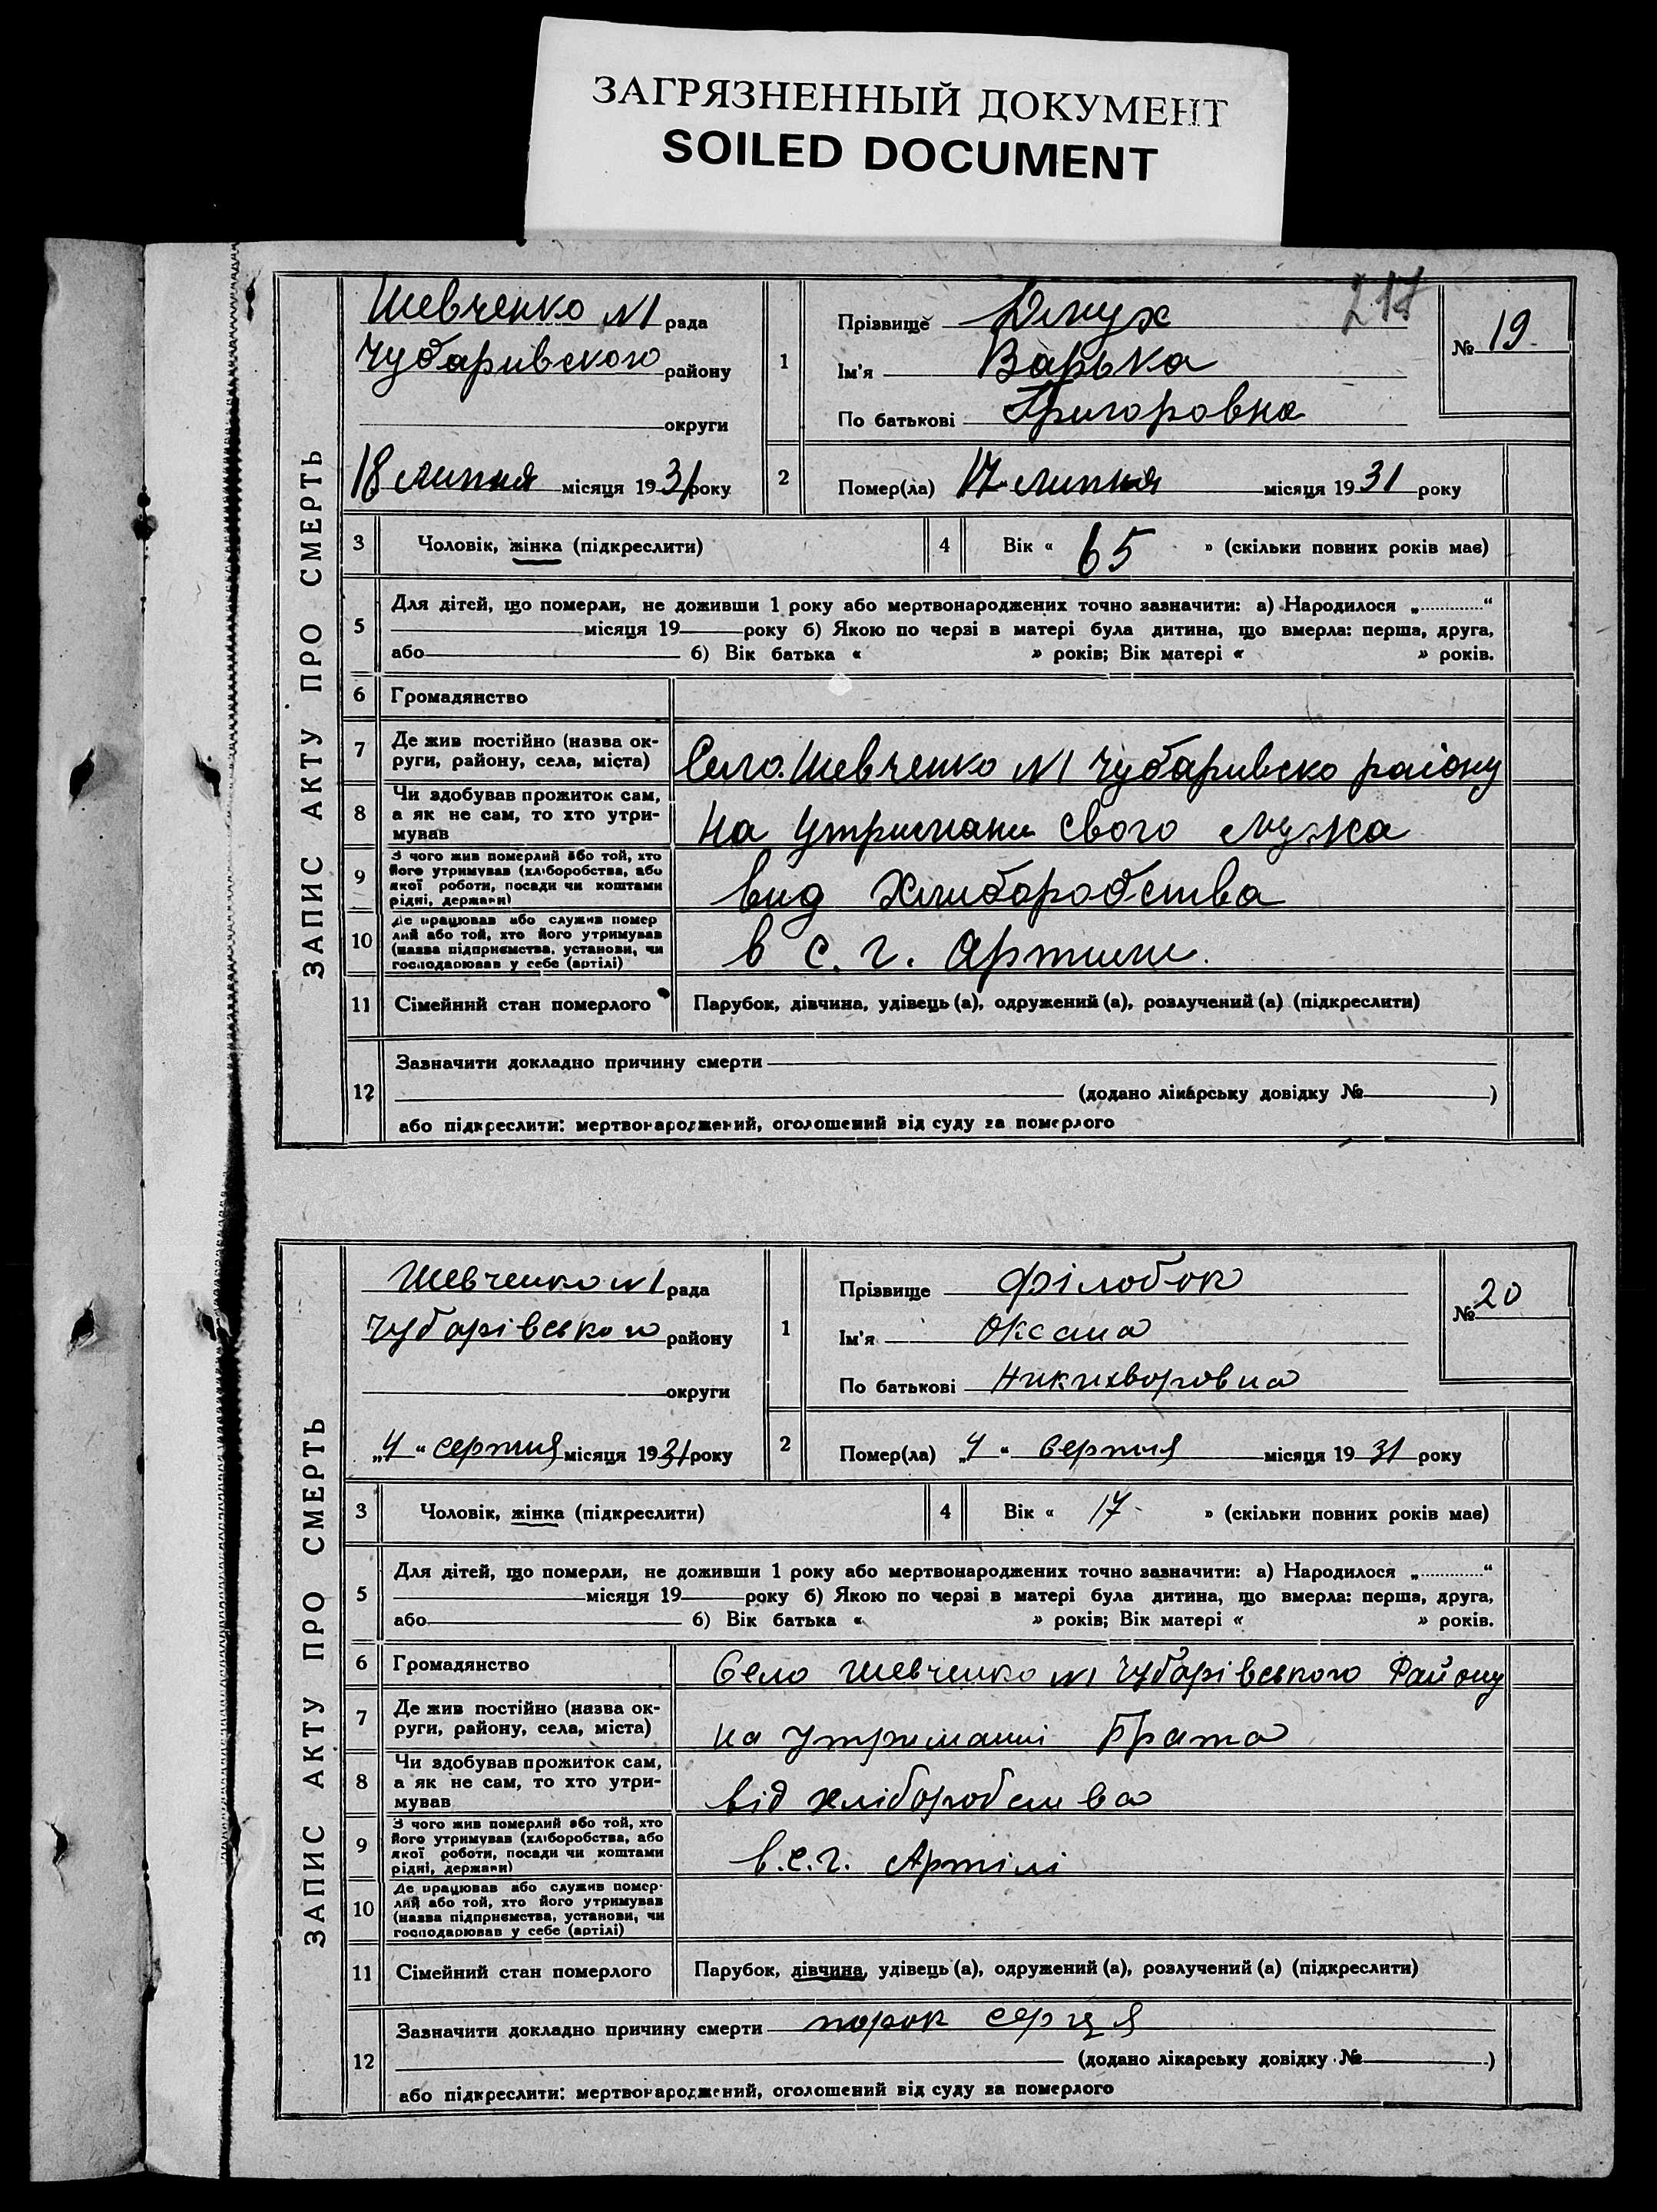 ЗАГРЯЗНЕННЫЙ ДОКУМЕНТ
SOILED DOCUMENT
217
ЗАПИС АКТУ ПРО СМЕРТЬ
Шевченко N1 рада
Чубаривского району
округи
18 липня місяця 1931 року
1
Прізвище
Ім'я Варька
По батькові Григоровна
№ 19
2
Помер(ла) 17 липня місяця 1931 року
3 Чоловік, жінка (підкреслити)
4 Вік « 65 » (скільки повних років має)
5 Для дітей, що померли, не доживши 1 року або мертвонароджених точно зазначити: а) Народилося „ “
місяця 19 року б) Якою по черзі в матері була дитина, що вмерла: перша, друга,
або б) Вік батька « » років; Вік матері « » років.
6 Громадянство
7 Де жив постійно (назва ок-
руги, району, села, міста) Село Шевченко N1 Чубаривско району
8 Чи здобував прожиток сам,
а як не сам, то хто утри-
мував на утримани свого мужа
9 З чого жив померлий або той, хто
його утримував (хліборобства, або
якої роботи, посади чи коштами
рідні, держави) вид хлиборобства
10 Де працював або служив помер
лий або той, хто його утримував
(назва підприємства, установи, чи
господарював у себе (артілі) в с. г. артили.
11 Сімейний стан померлого Парубок, дівчина, удівець (а), одружений (а), розлучений (а) (підкреслити)
12 Зазначити докладно причину смерти
(додано лікарську довідку № )
або підкреслити: мертвонароджений, оголошений від суду за померлого
ЗАПИС АКТУ ПРО СМЕРТЬ
Шевченко N1 рада
Чубарівського району
округи
„4“ серпня місяця 1931 року
1
Прізвище Філобок
Ім'я Оксана
По батькові Никихворовна
№ 20
2
Помер(ла) „4“ Серпня місяця 1931 року
3 Чоловік, жінка (підкреслити)
4 Вік « 17 » (скільки повних років має)
5 Для дітей, що померли, не доживши 1 року або мертвонароджених точно зазначити: а) Народилося „ “
місяця 19 року б) Якою по черзі в матері була дитина, що вмерла: перша, друга,
або б) Вік батька « » років; Вік матері « » років.
6 Громадянство Село Шевченко N1 Чубарівського Району
7 Де жив постійно (назва ок-
руги, району, села, міста) на утриманні Брата
8 Чи здобував прожиток сам,
а як не сам, то хто утри-
мував від хліборобства
9 З чого жив померлий або той, хто
його утримував (хліборобства, або
якої роботи, посади чи коштами
рідні, держави) в.с.г. Артілі
10 Де працював або служив помер-
лий або той, хто його утримував
(назва підприємства, установи, чи
господарював у себе (артілі)
11 Сімейний стан померлого Парубок, дівчина, удівець (а), одружений (а), розлучений (а) (підкреслити)
12 Зазначити докладно причину смерти порок серця
(додано лікарську довідку № )
або підкреслити: мертвонароджений, оголошений від суду за померлого